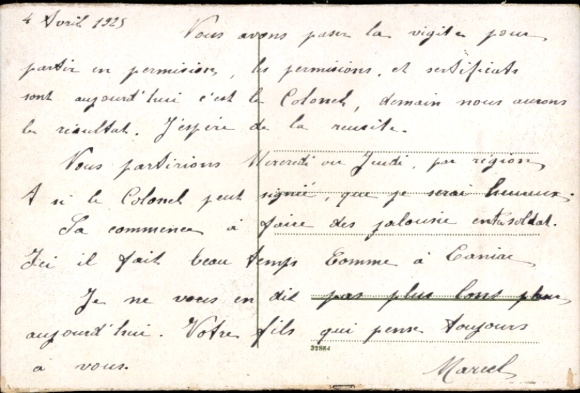 4 Avril 1925
Nous avons passer la vigite pour
partir en permision, les permisions, et sertificats
sont aujourd'hui c'est le Colonel, demain nous aurons
le résultat. J'espère de la reusite.
Nous partirions Mercredi ou Jeudi, par région,
A si le Colonel peut signié, que je serai heureux.
Sa commence à faire des jalousie entre soldat.
Ici il fait beau temps comme à
Je ne vous en dit pas plus long pour
aujourd'hui. Votre fils qui pense toujours
à vous.
Marcel
32884